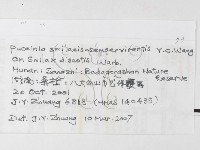 Puccinia smilacis-sempervirentis Y.C. Wang
On Smilax discotis Warb.
Hunan: Sangzhi: Badagongshan Nature Reserve
湖南: 桑植: 八大公山
20 Oct 2001
J.Y. Zhuang (HMAS 140485)
Det. J.Y. Zhuang 10 Mar. 2007